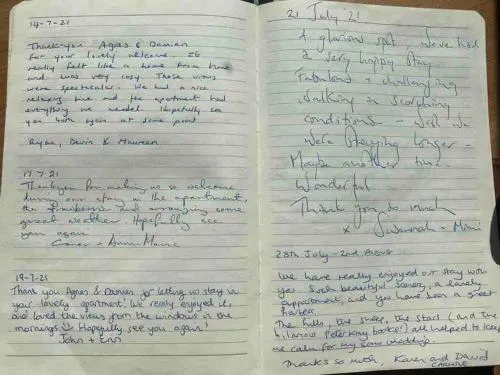 14-7-21
Thank you Agnes & Damian
for your lovely welcome. It
really felt like a home from home
and was very cosy. Those views
were spectacular. We had a nice
relaxing time and the apartment had
everything we needed. Hopefully see
you both again at some point
Ryan, Devin & Maureen
17.7.21
Thank you for making us so welcome
during our stay in the apartment,
the strawberries and arranging some
great weather. Hopefully see
you again
Conor + Anne Marie
19-7-21
Thank you Agnes & Damian for letting us stay in
your lovely apartment! We really enjoyed it,
and loved the views from the windows in the
mornings Hopefully see you again!
John +
21 July 21
A glorious spot. We've had
a very happy stay.
Fabulous + challenging
walking in scorching
conditions - wish we
were staying longer -
Maybe another time -
Wonderful
Thank you so much
x Susannah + Mimi
28th July - 2nd August
We have really enjoyed our stay with
you. Such beautiful scenery, a lovely
appartment, and you have been a great
The hills, the sheep, the stars (and the
hilarious Peter Kay books!) all helped to keep
me calm for my
Thanks so much, Karen and David